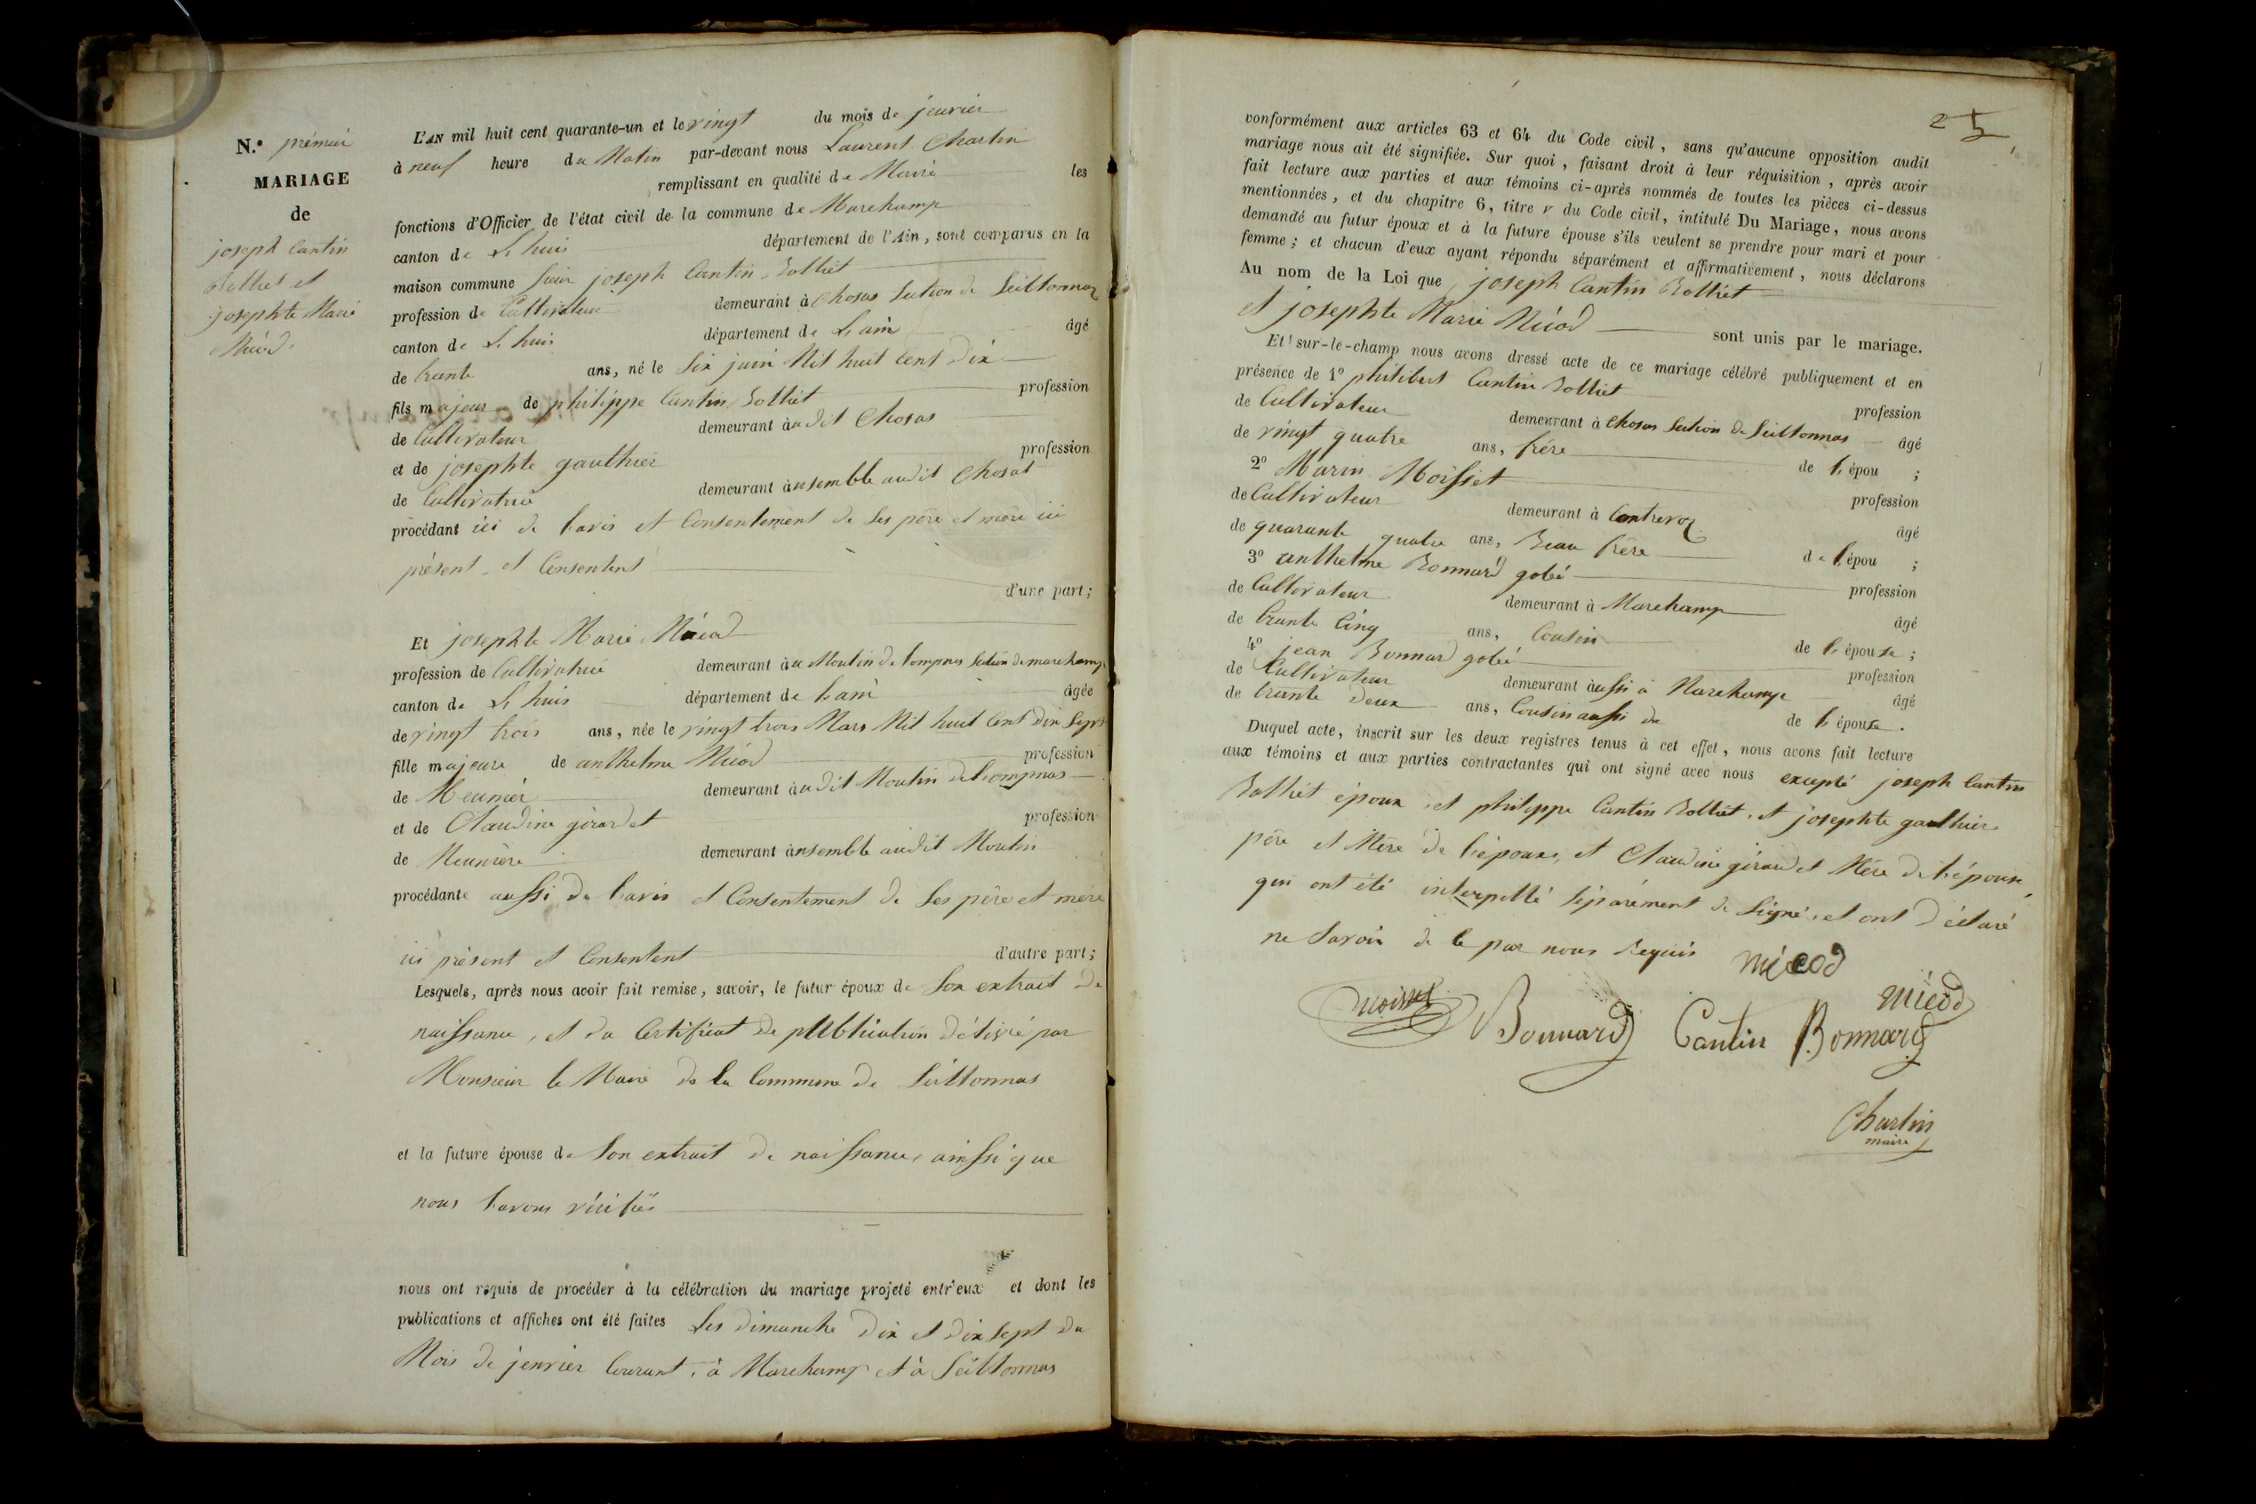 N.o prémier
MARIAGE
de
joseph Cantin
Bolliet et
josephte Marie
Miéod.
L'AN mil huit cent quarante-un et le vingt du mois de jenvier
à neuf heure du Matin par-devant nous Laurent Charlin
remplissant en qualité de Mairé les
fonctions d'Officier de l'état civil de la commune de Marchamp
canton de L. huis département de l'Ain, sont comparus en la
maison commune Sieur joseph Cantin Bolliet
profession de Cultivateur demeurant à Chosas Section de Seillonnaz
canton de L. huis département de L'ain âgé
de trente ans, né le Six juin Mil huit Cent Dix
fils majeur de philippe Cantin Bolliet profession
de Cultivateur demeurant àudit Chosas
et de josephte gauthier profession
de Cultivatrice demeurant ànsemble audit Chosas
procédant ici de l'avis et Consentement de Ses père et mère ici
présent et Consentent
d'une part;
Et josephte Marie Miéod
profession de Cultivatrice demeurant àu Moulin de Lompnas Section de marchamp
canton de L. huis département de L'ain âgée
de vingt trois ans, née le vingt trois Mars Mil huit Cent Dix Sept
fille majeure de anthelme Miéod profession
de Meunier demeurant àudit Moulin de Lompnas
et de Claudine girardet profession
de Meunière demeurant ànsemble audit Moulin
procédante aussi de l'avis et Consentement de Ses père et mère
ici présent et Consentent d'autre part;
Lesquels, après nous avoir fait remise, savoir, le futur époux de Son extrait de
naissance, et du Certificat de publication délivré par
Monsieur le Maire de la Commune de Seillonnas
et la future épouse de Son extrait de naissance, ainssi que
nous l'avons vérifié
nous ont requis de procéder à la célébration du mariage projeté entr'eux et dont les
publications et affiches ont été faites Les dimanche Dix et Dix Sept du
Mois de jenvier Courant, à Marchamp et à Seillonnas
25
conformément aux articles 63 et 64 du Code civil, sans qu'aucune opposition audit
mariage nous ait été signifiée. Sur quoi, faisant droit à leur réquisition, après avoir
fait lecture aux parties et aux témoins ci-après nommés de toutes les pièces ci-dessus
mentionnées, et du chapitre 6, titre v du Code civil, intitulé Du Mariage, nous avons
demandé au futur époux et à la future épouse s'ils veulent se prendre pour mari et pour
femme; et chacun d'eux ayant répondu séparément et affirmativement, nous déclarons
Au nom de la Loi que joseph Cantin Bolliet
et josephte Marie Miéod sont unis par le mariage.
Et sur-le-champ nous avons dressé acte de ce mariage célébré publiquement et en
présence de 1o philibert Cantin Bolliet profession
de Cultivateur demeurant à Chosas Section de Seillonnas âgé
de vingt quatre ans, frére de l'épou ;
2o Marin Moisset profession
de Cultivateur demeurant à Contrevoz âgé
de quarante quatre ans, Beau frère de l'épou ;
3o anthelme Bonnard golié profession
de Cultivateur demeurant à Marchamp âgé
de trente Cinq ans, Cousin de l'épouse ;
4o jean Bonnard golié profession
de Cultivateur demeurant àussi à Marchamp âgé
de trente Deux ans, Cousin aussi de de l'épouse.
Duquel acte, inscrit sur les deux registres tenus à cet effet, nous avons fait lecture
aux témoins et aux parties contractantes qui ont signé avec nous excepté joseph Cantin
Bolliet époux, et philippe Cantin Bolliet, et josephte gauthier
père et Mère de l'époux, et Claudine girardet Mère de l'épouse,
qui ont été interpellé séparément de Signé, et ont Déclaré
ne Savoir de le par nous Requis
miéod
miéod
Moisset Bonnard Cantin Bonnard
Charlin
maire